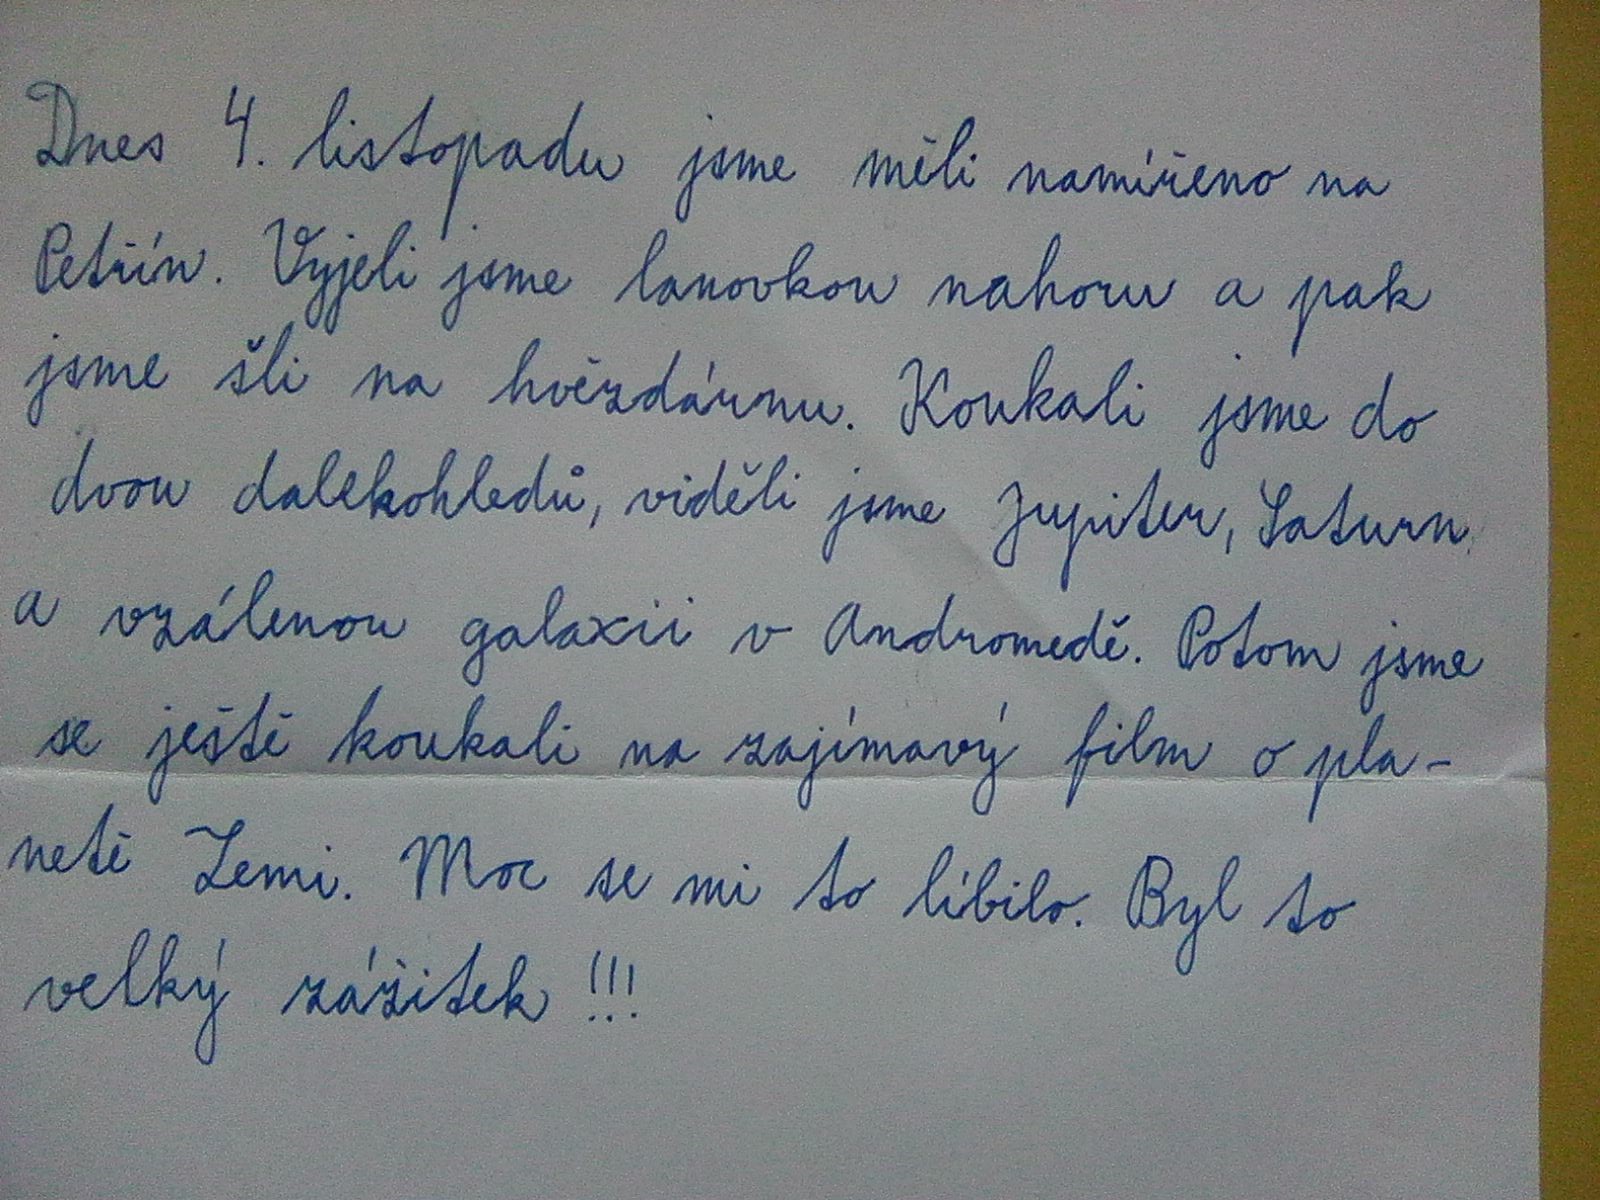 Dnes 4. listopadu jsme měli namířeno na
Petřín. Vyjeli jsme lanovkou nahoru a pak
jsme šli na hvězdárnu. Koukali jsme do
dvou dalekohledů, viděli jsme Jupiter, Saturn
a vzálenou galaxii v Andromedě. Potom jsme
se ještě koukali na zajímavý film o pla-
netě Zemi. Moc se mi to líbilo. Byl to
velký zážitek !!!